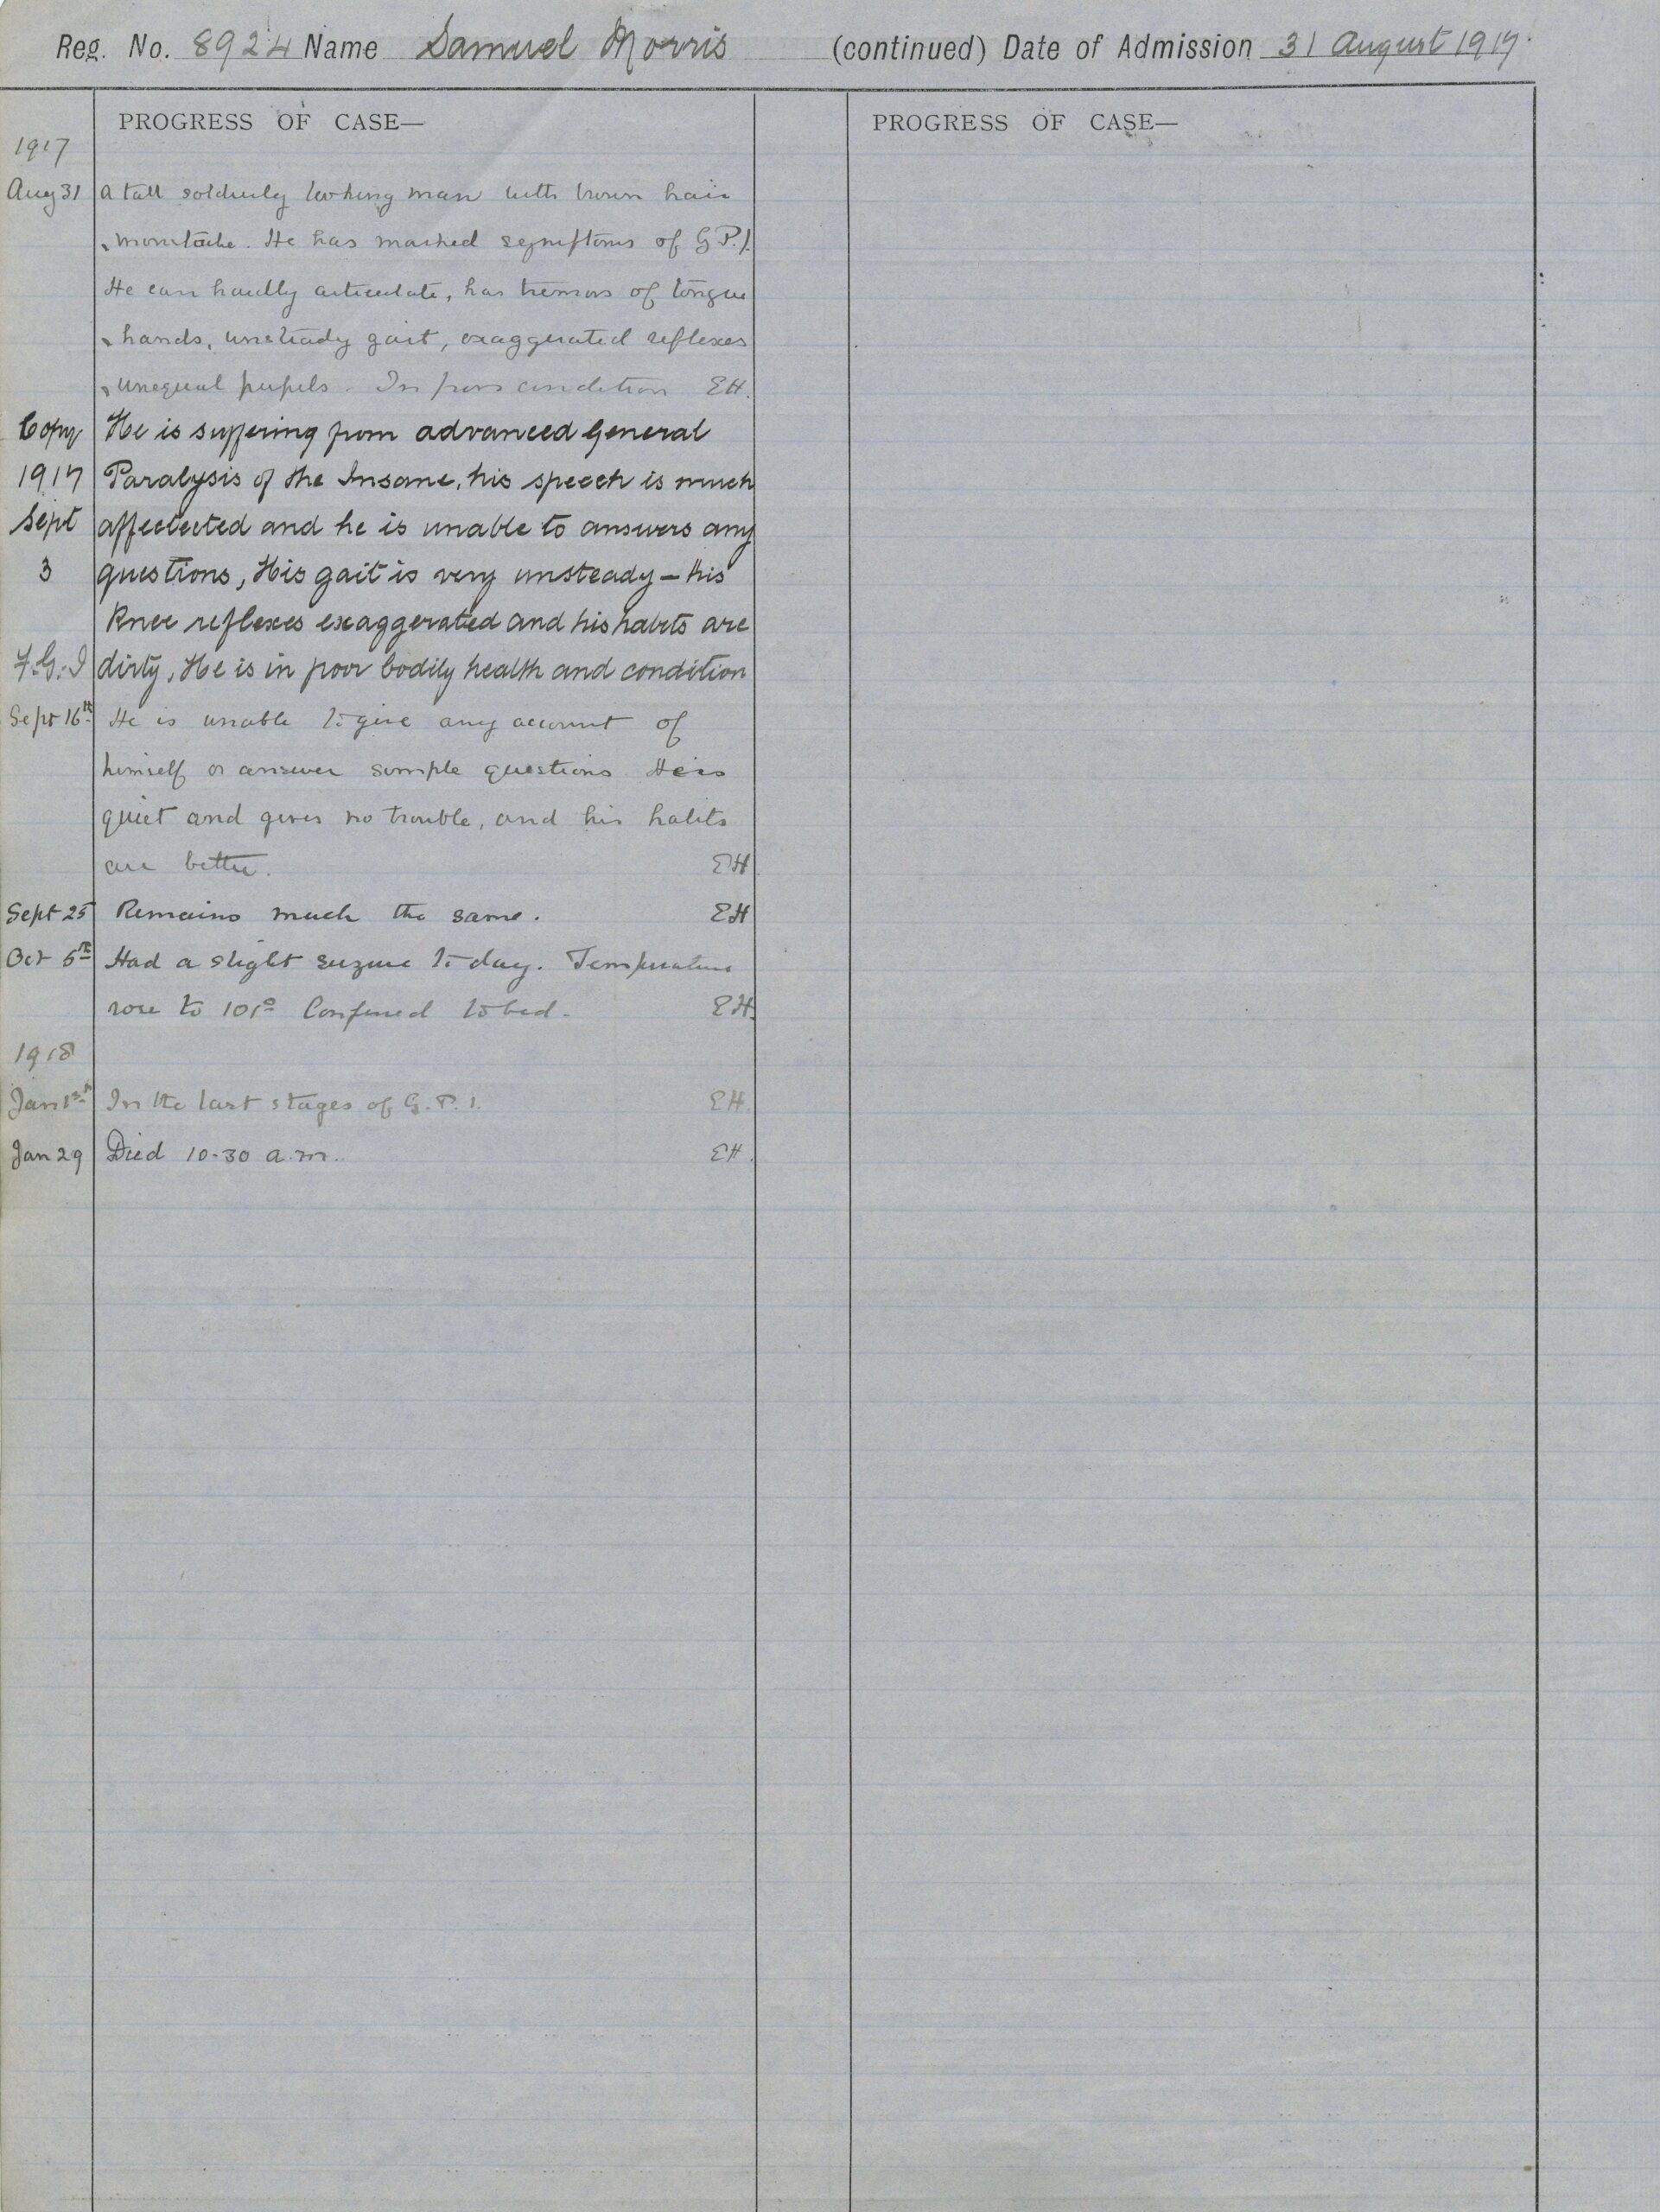 Reg. No. 8924 Name Samuel Morris (continued) Date of Admission 31 August 1917.
PROGRESS OF CASE— PROGRESS OF CASE—
1917
Aug 31 A tall soldierly looking man with brown hair
& moustache. He has marked symptoms of G.P.I.
He can hardly articulate, has tremors of tongue
& hands, unsteady gait, exaggerated reflexes
& unequal pupils. In poor condition EH.
Copy He is suffering from advanced General
1917 Paralysis of the Insane, his speech is much
Sept affectected and he is unable to answers any
3 questions, His gait is very unsteady – his
Knee reflexes exaggerated and his habits are
F.G.I dirty, He is in poor bodily health and condition
Sept 16th He is unable to give any account of
himself or answer simple questions He is
quiet and gives no trouble, and his habits
are better. EH
Sept 25 Remains much the same. EH
Oct 5th Had a slight seizure to day. Temperature
rose to 101° Confined to bed. EH.
1918
Jan 1st In the last stages of G.P.I. EH.
Jan 29 Died 10-30 a.m. EH.